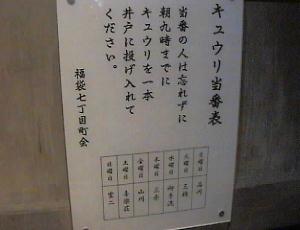 キュウリ当番表
当番の人は忘れずに
朝九時までに
キュウリを一本
井戸に投げ入れて
ください。
福袋七丁目町会
月曜日 品川
火曜日 三輪
水曜日 御手洗
木曜日 三奈
金曜日 山川
土曜日 喜楽荘
日曜日